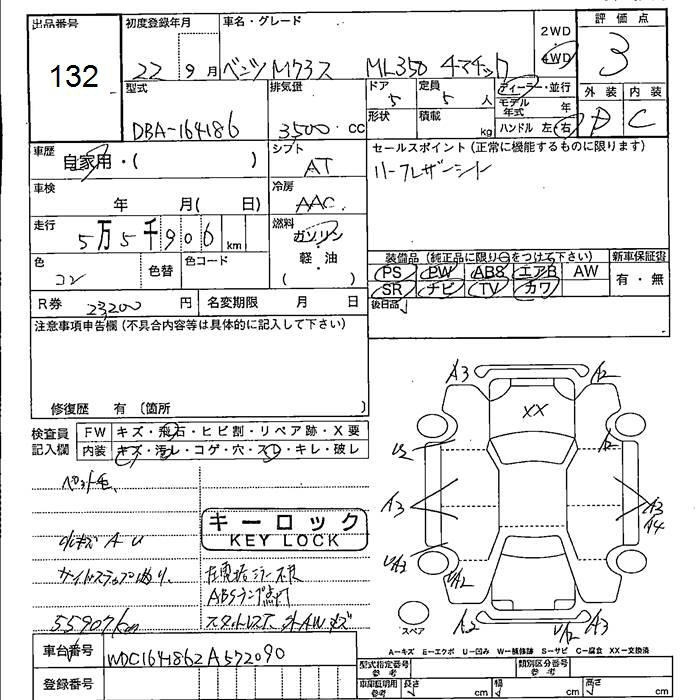 出品番号 初度登録年月 車名・グレード 2WD 評価点
132 22 9月 ベンツ M73ス ML350 4マチック 4WD 3
型式 排気量 ドア 定員 ディーラー・並行 外装 内装
DBA-164186 3500 cc 5 5 人 モデル年式 年 D C
形状 積載 kg ハンドル 左・右
車歴 シフト セールスポイント(正常に機能するものに限ります)
自家用・( ) AT ハーフレザーシート
車検 冷房
年 月( 日) AAC
走行 燃料
5万5千906 km ガソリン・軽・油 ( )
装備品(純正品に限り○をつけて下さい) 新車保証書
色 色替 色コード PS PW ABS エアB AW 有・無
コン SR ナビ TV カワ
R券 23200 円 名変期限 月 日 後日品
注意事項申告欄(不具合内容等は具体的に記入して下さい)
修復歴 有(箇所 )
検査員記入欄 FW キズ・飛石・ヒビ割・リペア跡・X要
内装 キズ・汚レ・コゲ・穴・スレ・キレ・破レ
A3 A2
XX
U2 A2
A3 A3 A4
U/A3 U/A2
A2 U/A2 A3
ペット毛
キーロック
KEY LOCK
小キズ A U
サイドステップ
ABSランプ点灯
55907km スタットレス 外AWキズ
スペア
A-キズ E-エクボ U-凹み W-補修跡 S-サビ C-腐食 XX-交換済
車台番号 WDC1641862A572090
型式指定番号 参考 類別区分番号 参考
登録番号 車庫証明用 参考 長さ cm 幅 cm 高さ cm